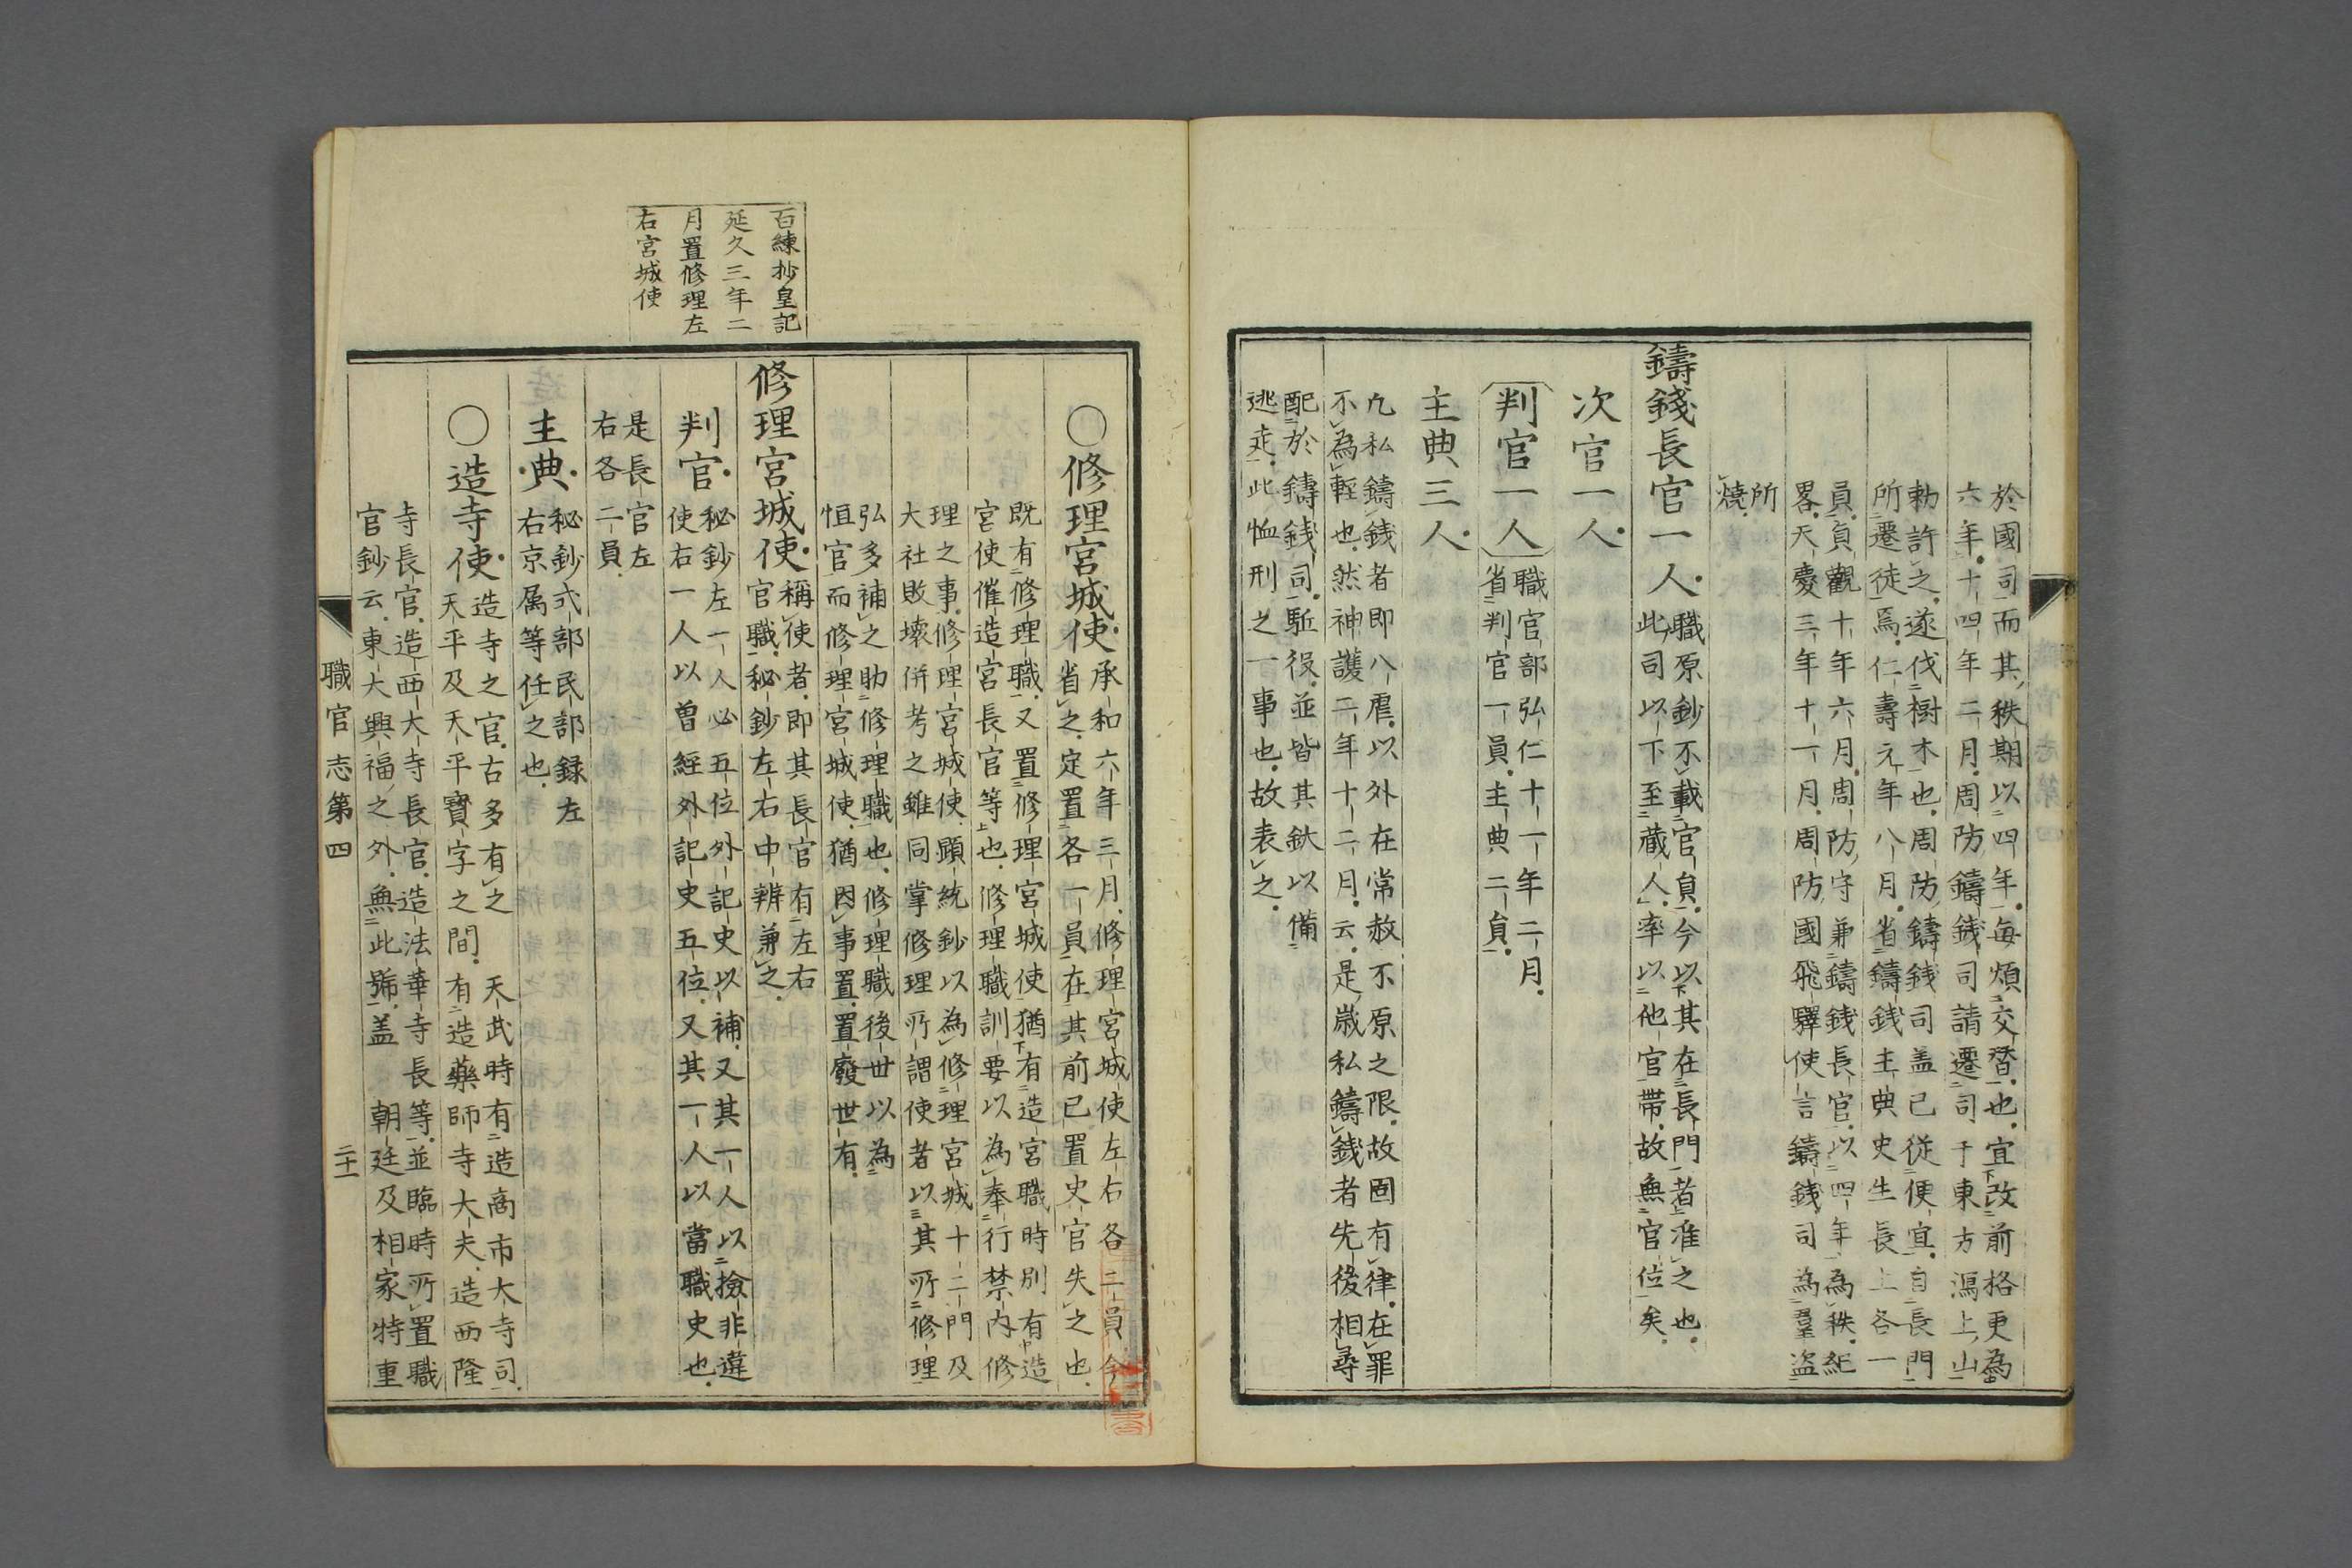 於國司而其秩期以四年每煩交替也宜改前格更為
六年十四年二月周防鑄錢司請遷司于東方潟上山
勅許之遂伐樹木也周防鑄錢司盖已従便宜自長門
所遷徒焉仁壽元年八月省鑄錢主典史生長上各一
員貞觀十年六月周防守兼鑄錢長官以四年為秩紀
畧天慶三年十一月周防國飛驛使言鑄錢司為羣盗
所
燒
鑄錢長官一人
職原鈔不載官員今以其在長門者准之也
此司以下至藏人率以他官帶故無官位矣
次官一人
判官一人
職官部弘仁十一年二月
省判官一員主典二員
主典三人
凡私鑄錢者即八虐以外在常赦不原之限故固有律在罪
不為輕也然神護二年十二月云是歲私鑄錢者先後相尋
配於鑄錢司駈役並皆其鈦以備
逃走此恤刑之一事也故表之
百練抄皇記
延久三年二
月置修理左
右宮城使
〇修理宮城使
承和六年三月修理宮城使左右各三員今
省之定置各一員在其前已置史官失之也
既有修理職又置修理宮城使猶有造宮職時別有造
宮使催造宮長官等也修理職訓要以為奉行禁内修
理之事修理宮城使顕統鈔以為修理宮城十二門及
大社敗壞併考之雖同掌修理所謂使者以其所修理
弘多補之助修理職也修理職後世以為
恒官而修理宮城使猶因事置置廢世有
修理宮城使
稱使者即其長官有左右
官職秘鈔左右中辨兼之
判官
秘鈔左一人必五位外記史以補又其一人以撿非違
使右一人以曽經外記史五位又其一人以當職史也
是長官左
右各二員
主典
秘鈔式部民部録左
右京属等任之也
〇造寺使
造寺之官古多有之　天武時有造高市大寺司
天平及天平寶字之間有造藥師寺大夫造西隆
寺長官造西大寺長官造法華寺長等並臨時所置職
官鈔云東大興福之外無此號盖　朝廷及相家特重
職官志第四
二十一